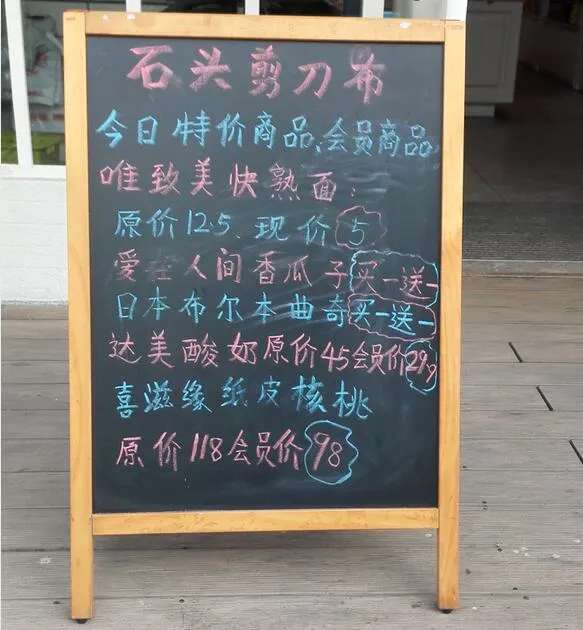 石头剪刀布
今日特价商品、会员商品
唯致美快熟面：
原价12.5、现价5
爱在人间香瓜子买一送一
日本布尔本曲奇买一送一
达美酸奶原价45会员价29.9
喜滋缘纸皮核桃
原价118会员价98